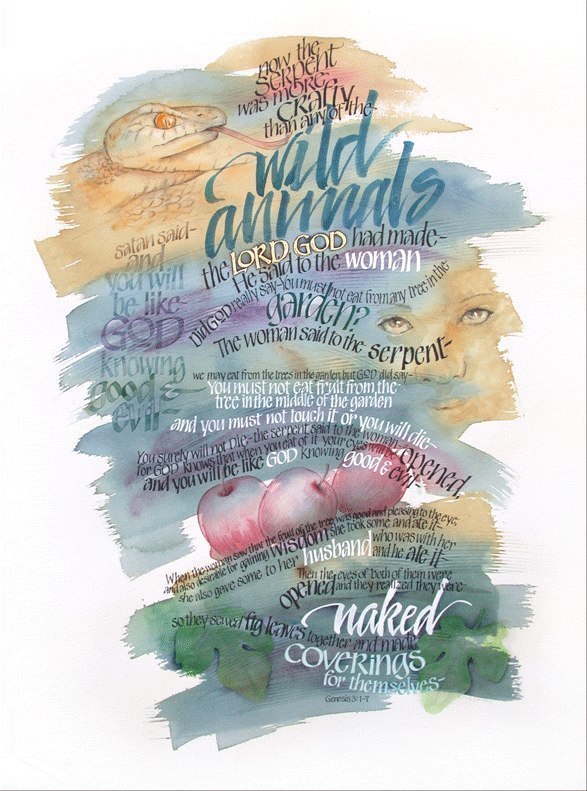 now the
serpent
was more
crafty
than any of the
wild
animals
the LORD GOD had made
He said to the woman
Did GOD really say-you must not eat from any tree in the
garden?
The woman said to the serpent-
we may eat from the trees in the garden, but GOD did say-
You must not eat fruit from the
tree in the middle of the garden
and you must not touch it or you will die-
You surely will not die-the serpent said to the woman
for GOD knows that when you eat of it your eyes will be opened,
and you will be like GOD knowing good & evil-
When the woman saw that the fruit of the tree was good and pleasing to the eye,
and also desirable for gaining wisdom she took some and ate it-
she also gave some to her husband who was with her
and he ate it-
Then the eyes of both of them were
opened and they realized they were
naked
so they sewed fig leaves together and made
COVERINGS
for themselves-
Genesis 3:1-7
satan said-
and
you will
be like-
GOD
knowing
good &
evil-